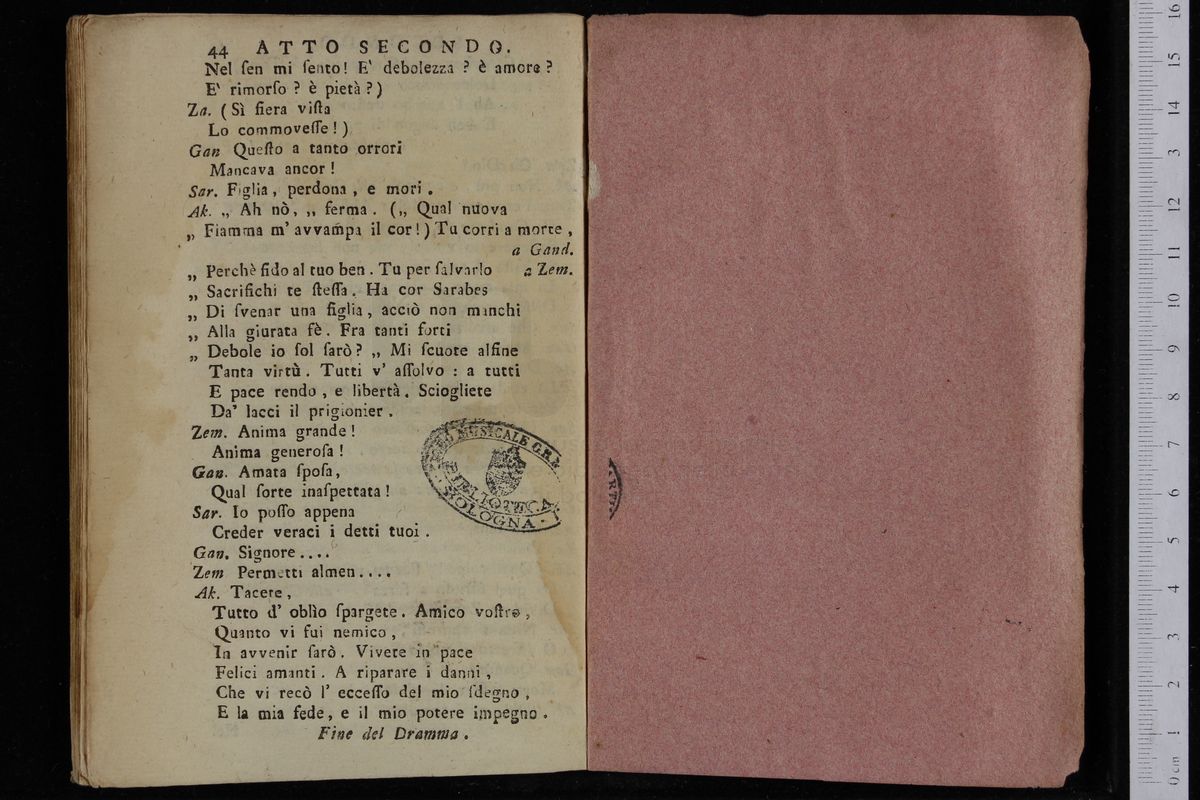 44 ATTO SECONDO.
Nel ſen mi ſento! E' debolezza ? è amore ?
E' rimorſo ? è pietà ?)
Za. ( Sì fiera viſta
Lo commoveſſe ! )
Gan Queſto a tanto orrori
Mancava ancor !
Sar. Figlia , perdona , e mori .
Ak. „ Ah nò, „ ferma . („ Qual nuova
„ Fiamma m' avvampa il cor ! ) Tu corri a morte ,
a Gand.
„ Perchè fido al tuo ben . Tu per ſalvarlo a Zem.
„ Sacrifichi te ſteſſa . Ha cor Sarabes
„ Di ſvenar una figlia , acciò non manchi
„ Alla giurata fè . Fra tanti forti
„ Debole io ſol ſarò ? „ Mi ſcuote alfine
Tanta virtù . Tutti v' aſſolvo : a tutti
E pace rendo , e libertà . Sciogliete
Da' lacci il prigionier .
Zem. Anima grande !
Anima generoſa !
Gan. Amata ſpoſa,
Qual ſorte inaſpettata !
Sar. Io poſſo appena
Creder veraci i detti tuoi .
Gan. Signore ....
Zem Permetti almen ....
Ak. Tacete ,
Tutto d' oblìo ſpargete . Amico voſtro ,
Quanto vi fui nemico ,
In avvenir ſarò . Vivete in pace
Felici amanti . A riparare i danni ,
Che vi recò l' ecceſſo del mio ſdegno ,
E la mia fede , e il mio potere impegno .
Fine del Dramma .
MUSICALE
BIBLIOTECA
BOLOGNA
0 cm 1 2 3 4 5 6 7 8 9 10 11 12 13 14 15 16